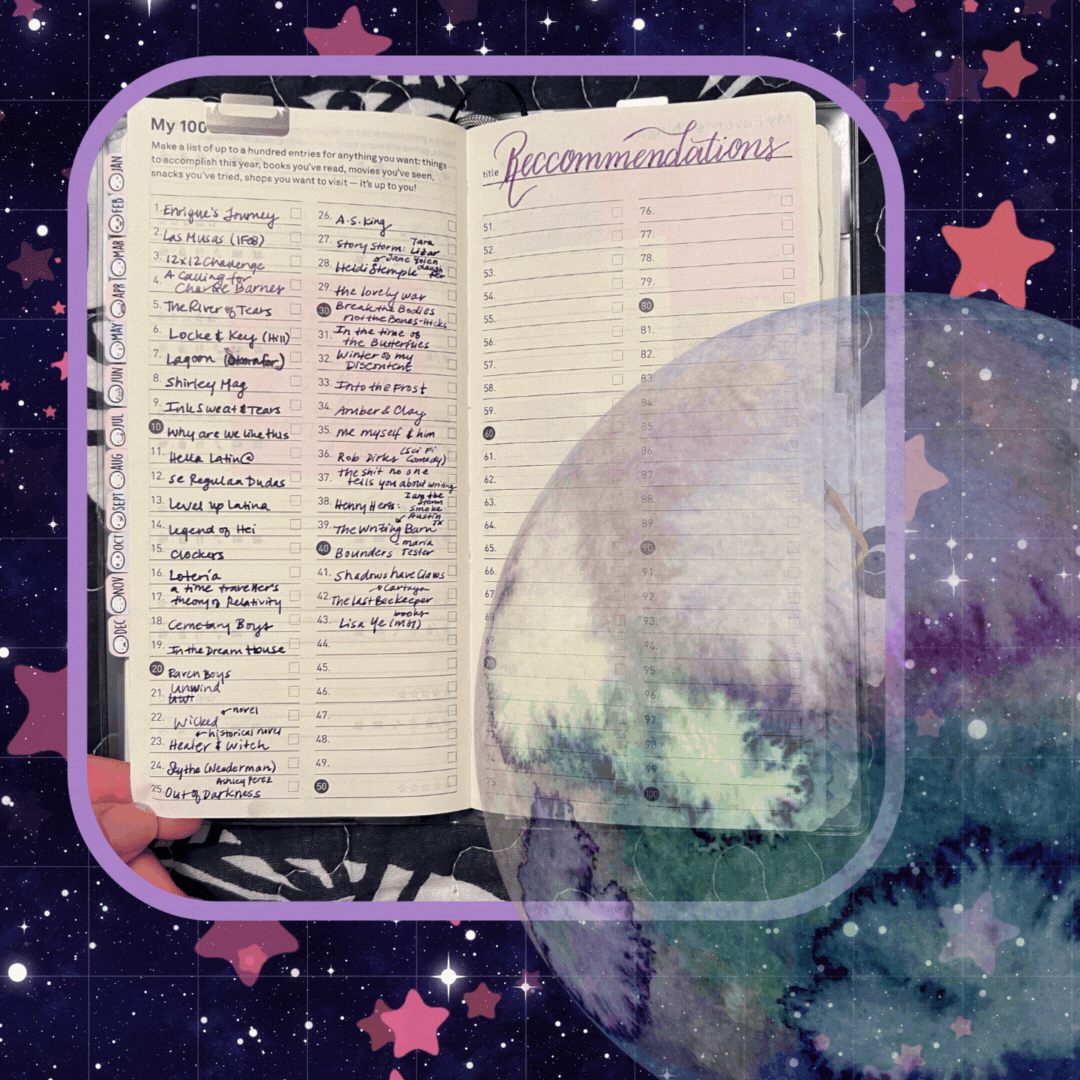 My 100
Make a list of up to a hundred entries for anything you want: things
to accomplish this year, books you've read, movies you've seen,
snacks you've tried, shops you want to visit — it's up to you!
JAN
FEB
MAR
APR
MAY
JUN
JUL
AUG
SEPT
OCT
NOV
DEC
1. Enrique's Journey
2. Las Musas (IFOB)
3. 12x12 Challenge
4. A Calling for
Charlie Barnes
5. The River of Tears
6. Locke & Key (Hill)
7. Lagoon (Okorafor)
8. Shirley Mag
9. Ink Sweat & Tears
10 Why are we like this
11. Hella Latin@
12. Se Regulan Dudas
13. Level up Latina
14. Legend of Hei
15. Clockers
16. Loteria
17. a time traveller's
theory of Relativity
18. Cemetary Boys
19. In the Dream House
20 Raven Boys
21. Unwind
22. Wicked novel
23. Healer & Witch historical novel
24. Scythe (Neaderman)
25. Out of Darkness Ashley Perez
26. A.S. King
27. Story Storm: Tara
Lazar
28. Heidi Stemple & Jane Yolen
29. the lovely war
30 Break the Bodies
not the Bones - Hicks
31. In the time of
the Butterflies
32. Winter of my
Discontent
33. Into the Frost
34. Amber & Clay
35. me myself & him
36. Rob Dirks (Sci Fi
Comedy)
37. the shit no one
tells you about writing
38. Henry Herz: I am the
Storm
Smoke
39. The Writing Barn Austin
TX
40 Bounders Maria
Tester
41. Shadows have Claws
42. The Last Beekeeper Cartaya
43. Lisa Ye (MG?) books
44.
45.
46.
47.
48.
49.
50
title Reccommendations
51.
52.
53.
54.
55.
56.
57.
58.
59.
60
61.
62.
63.
64.
65.
66.
67.
68.
70
74
75
76.
77.
78.
79.
80
81.
82.
83
84.
85.
86.
87.
88.
89.
90
91.
92.
93.
94.
95
96
97
98
99
100